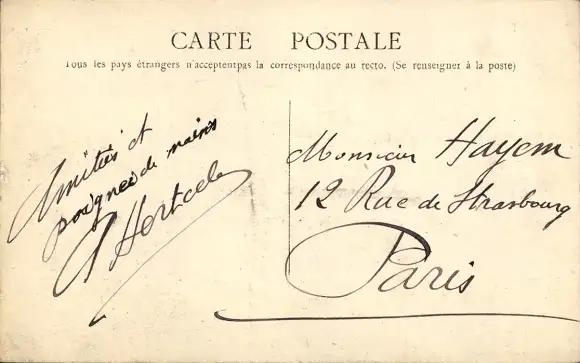 CARTE POSTALE
Tous les pays étrangers n'acceptentpas la correspondance au recto. (Se renseigner à la poste)
Amitiés et
poignée de mains
Monsieur Hayem
12 Rue de Strasbourg
Paris